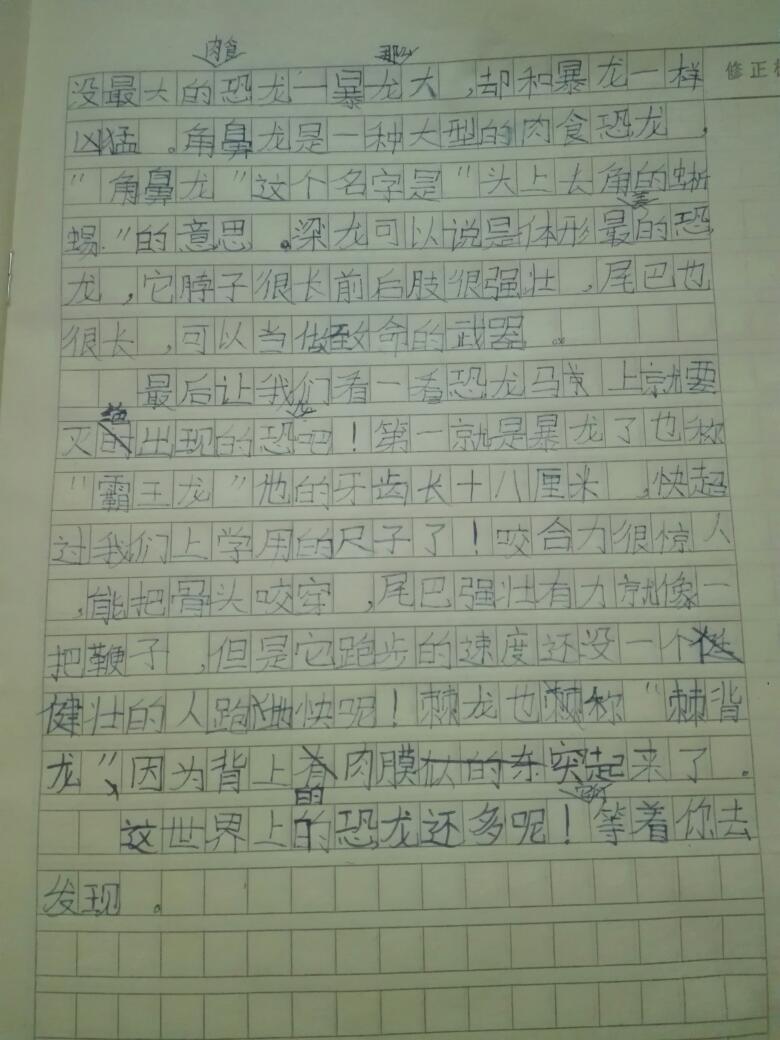 肉食 那么
没最大的恐龙一暴龙大,却和暴龙一样
修正
凶猛。角鼻龙是一种大型的肉食恐龙,
"角鼻龙"这个名字是"头上长角的蜥
蜴"的意思。梁龙可以说是体形最美的恐
龙,它脖子很长前后肢很强壮,尾巴也
很长,可以当做致命的武器。
最后让我们看一看恐龙马京上就要
灭绝时出现的恐龙吧!第一就是暴龙了也称
"霸王龙"他的牙齿长十八厘米,快超
过我们上学用的尺子了!咬合力很惊人
,能把骨头咬穿,尾巴强壮有力就像一
把鞭子,但是它跑步的速度还没一个
健壮的人跑地快呢!棘龙也称"棘背
龙",因为背上的肉膜突起来了。
这世界上的恐龙还多呢!等着你去
发现。